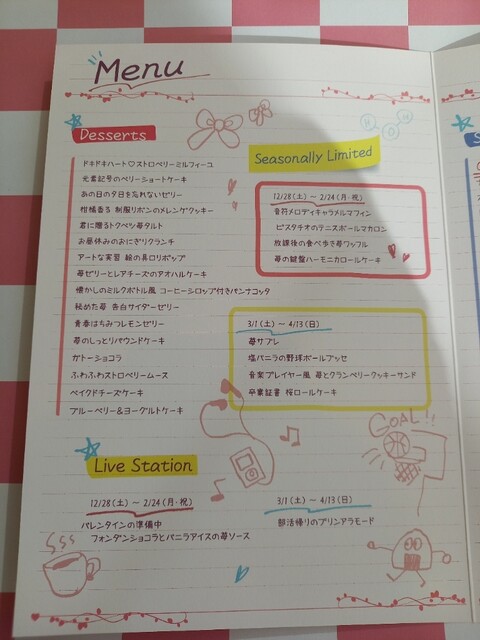 Menu
Desserts
ドキドキハート♡ストロベリーミルフィーユ
元素記号のベリーショートケーキ
あの日の夕日を忘れないゼリー
柑橘香る 制服リボンのメレンゲクッキー
君に贈るトクベツ苺タルト
お昼休みのおにぎりクランチ
アートな実習 絵の具ロリポップ
苺ゼリーとレアチーズのアオハルケーキ
懐かしのミルクボトル風 コーヒーシロップ付きパンナコッタ
秘めた苺 告白サイダーゼリー
青春はちみつレモンゼリー
苺のしっとりパウンドケーキ
ガトーショコラ
ふわふわストロベリームース
ベイクドチーズケーキ
ブルーベリー&ヨーグルトケーキ
H O H
Seasonally Limited
12/28(土)～2/24(月・祝)
音符メロディキャラメルマフィン
ピスタチオのテニスボールマカロン
放課後の食べ歩き苺ワッフル
苺の鍵盤ハーモニカロールケーキ
3/1(土)～4/13(日)
苺サブレ
塩バニラの野球ボールブッセ
音楽プレイヤー風 苺とクランベリークッキーサンド
卒業証書 桜ロールケーキ
GOAL!!
Live Station
12/28(土)～2/24(月・祝)
バレンタインの準備中
フォンダンショコラとバニラアイスの苺ソース
3/1(土)～4/13(日)
部活帰りのプリンアラモード